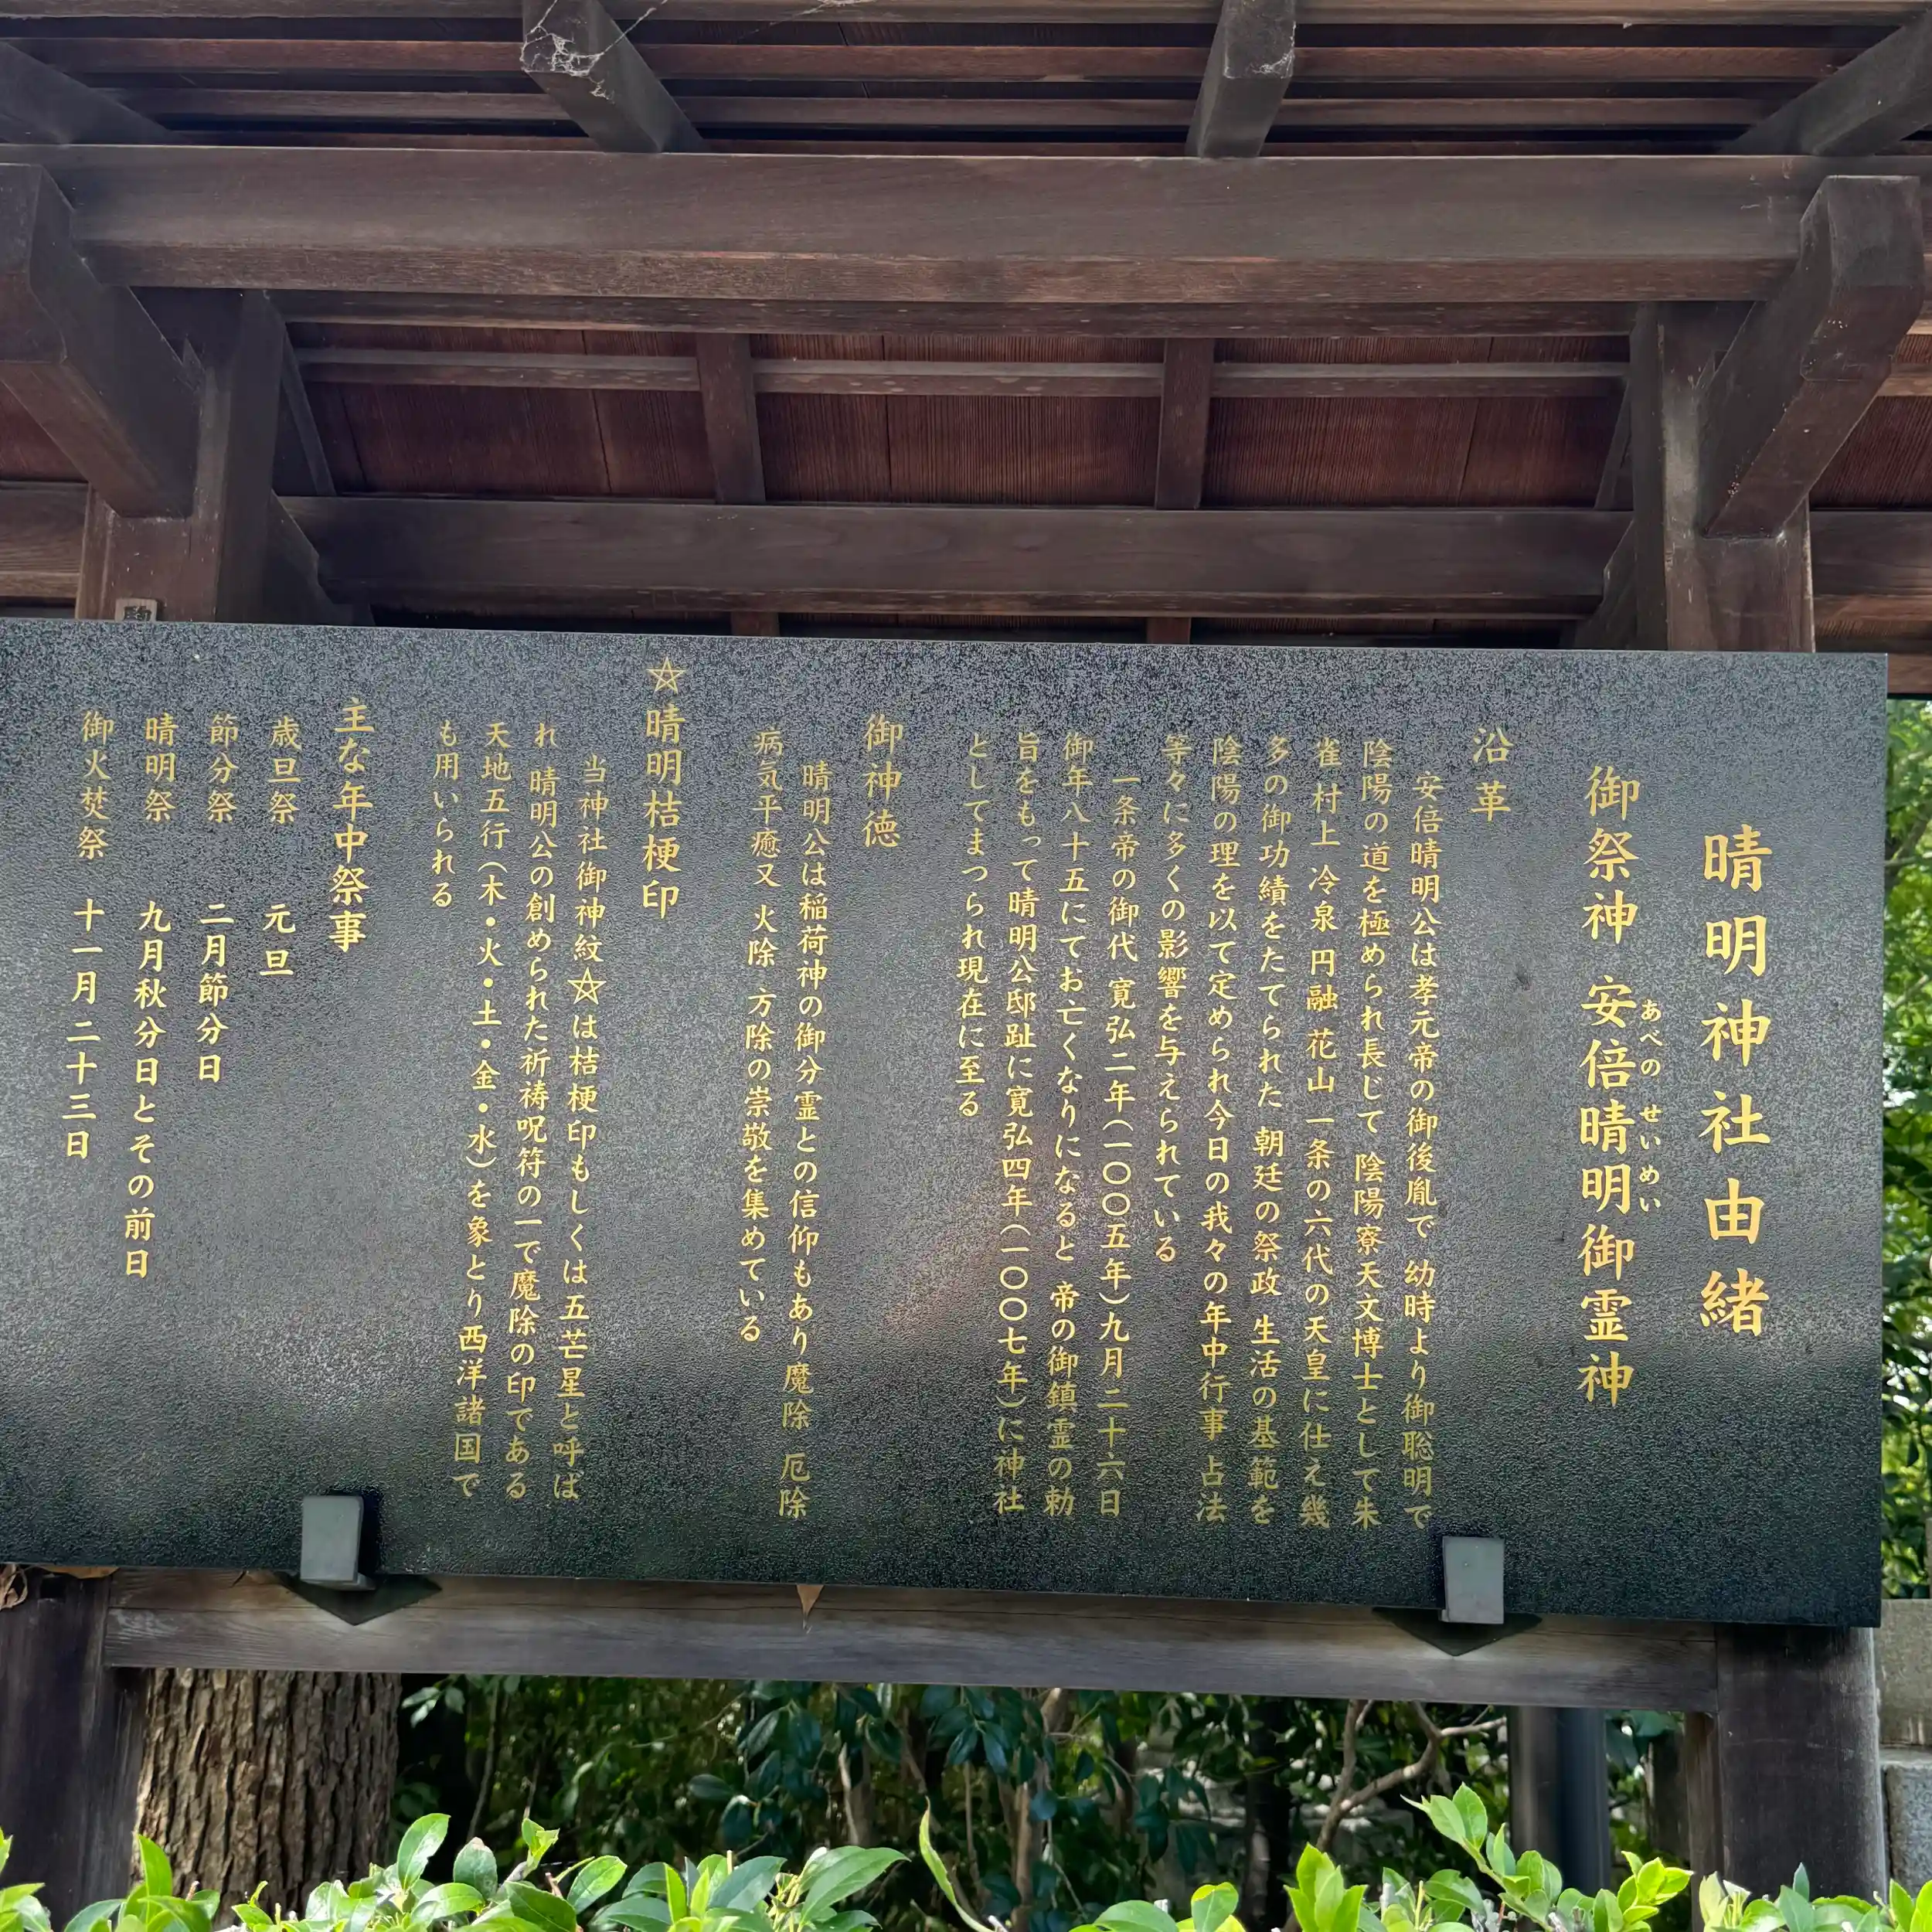 晴明神社由緒
御祭神 安倍晴明御霊神
あべの せいめい
沿革
安倍晴明公は孝元帝の御後胤で 幼時より御聡明で
陰陽の道を極められ長じて 陰陽寮天文博士として朱
雀 村上 冷泉 円融 花山 一条の六代の天皇に仕え幾
多の御功績をたてられた 朝廷の祭政 生活の基範を
陰陽の理を以て定められ今日の我々の年中行事 占法
等々に多くの影響を与えられている
一条帝の御代 寛弘二年(一〇〇五年)九月二十六日
御年八十五にてお亡くなりになると 帝の御鎮霊の勅
旨をもって晴明公邸趾に寛弘四年(一〇〇七年)に神社
としてまつられ現在に至る
御神徳
晴明公は稲荷神の御分霊との信仰もあり 魔除 厄除
病気平癒又 火除 方除の崇敬を集めている
☆晴明桔梗印
当神社御神紋☆は桔梗印もしくは五芒星と呼ば
れ 晴明公の創められた祈祷呪符の一で魔除の印である
天地五行(木・火・土・金・水)を象とり西洋諸国で
も用いられる
主な年中祭事
歳旦祭 元旦
節分祭 二月節分日
晴明祭 九月秋分日とその前日
御火焚祭 十一月二十三日